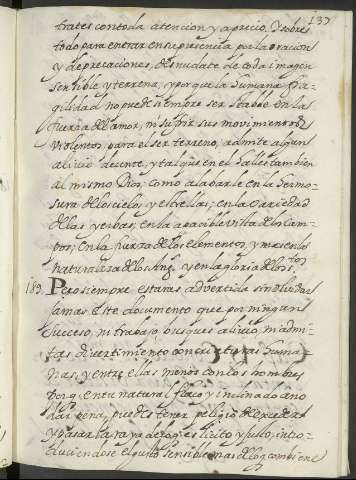 137
trates con toda atencion y aprecio. Y sobre
todo para entrar en su presencia por la oracion
y deprecaciones, desnudate de toda imagen
sensible y terrena, y porque la humana fra-
gilidad no puede siempre ser estable en la
fuerza del amor, ni sufrir sus movimientos
violentos para el ser terreno, admite algun
alivio decente, y tal que en el halles tambien
al mismo Dios; como alabarle en la hermo-
sura de los cielos y estrellas; en la variedad
de las yerbas; en la apacible vista de los cam-
pos; en la fuerza de los elementos, y mas en la
naturaleza de los Ang.s y en la gloria de los S.tos
189. Pero siempre estaras advertida sin olvidar
jamas este documento que por ningun
suceso, ni trabajo busques alivio, ni admi-
tas divertimiento con criaturas huma-
nas, y entre ellas menos con los hombres,
porq. en tu natural flaco y inclinado a no
dar pena, puedes tener peligro de exceder
y pasar la raya de loq. es licito y justo, intro-
duciendose el gusto sensible mas de loq. combiene